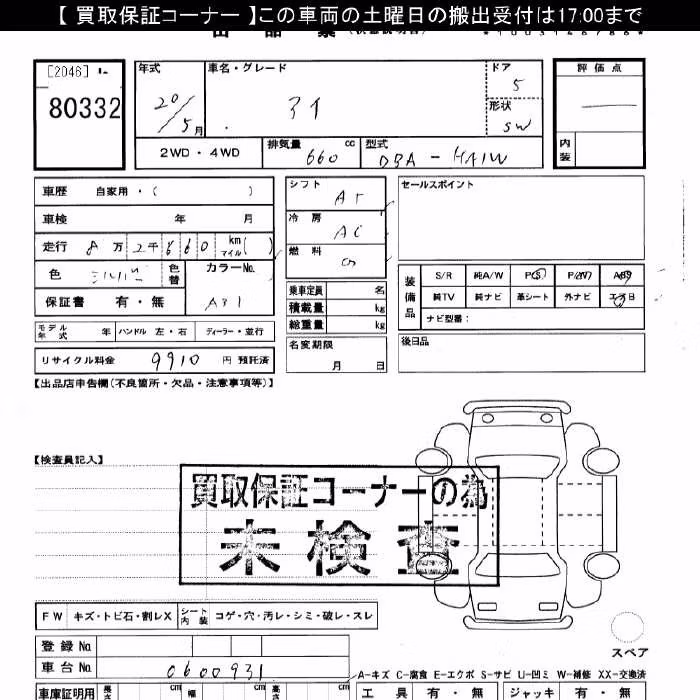 【 買取保証コーナー 】この車両の土曜日の搬出受付は17:00まで
[2046]
80332
年式
20/5月
車名・グレード
アイ
ドア
5
形状
SW
評価点
内装
2WD・4WD
排気量 660 cc
型式 DBA - HA1W
車歴 自家用・( )
車検 年 月
走行 8万2千660 km マイル( )
色 シルバー 色替
カラーNo. A31
保証書 有・無
シフト AT
冷房 AC
燃料
乗車定員 名
積載量 kg
総重量 kg
セールスポイント
装備品
S/R 純A/W P/S P/W ABS
純TV 純ナビ 革シート 外ナビ エアB
ナビ型番:
モデル年式 年 ハンドル 左・右 ディーラー・並行
リサイクル料金 9910 円 預託済
名変期限 月 日
後日品
【出品店申告欄(不良箇所・欠品・注意事項等)】
【検査員記入】
買取保証コーナーの為
未検査
FW キズ・トビ石・割レX シート内装 コゲ・穴・汚レ・シミ・破レ・スレ
スペア
登録No.
車台No. 0600931
A-キズ C-腐食 E-エクボ S-サビ U-凹ミ W-補修 XX-交換済
車庫証明用 長さ cm 幅 cm 高さ cm
工具 有・無 ジャッキ 有・無